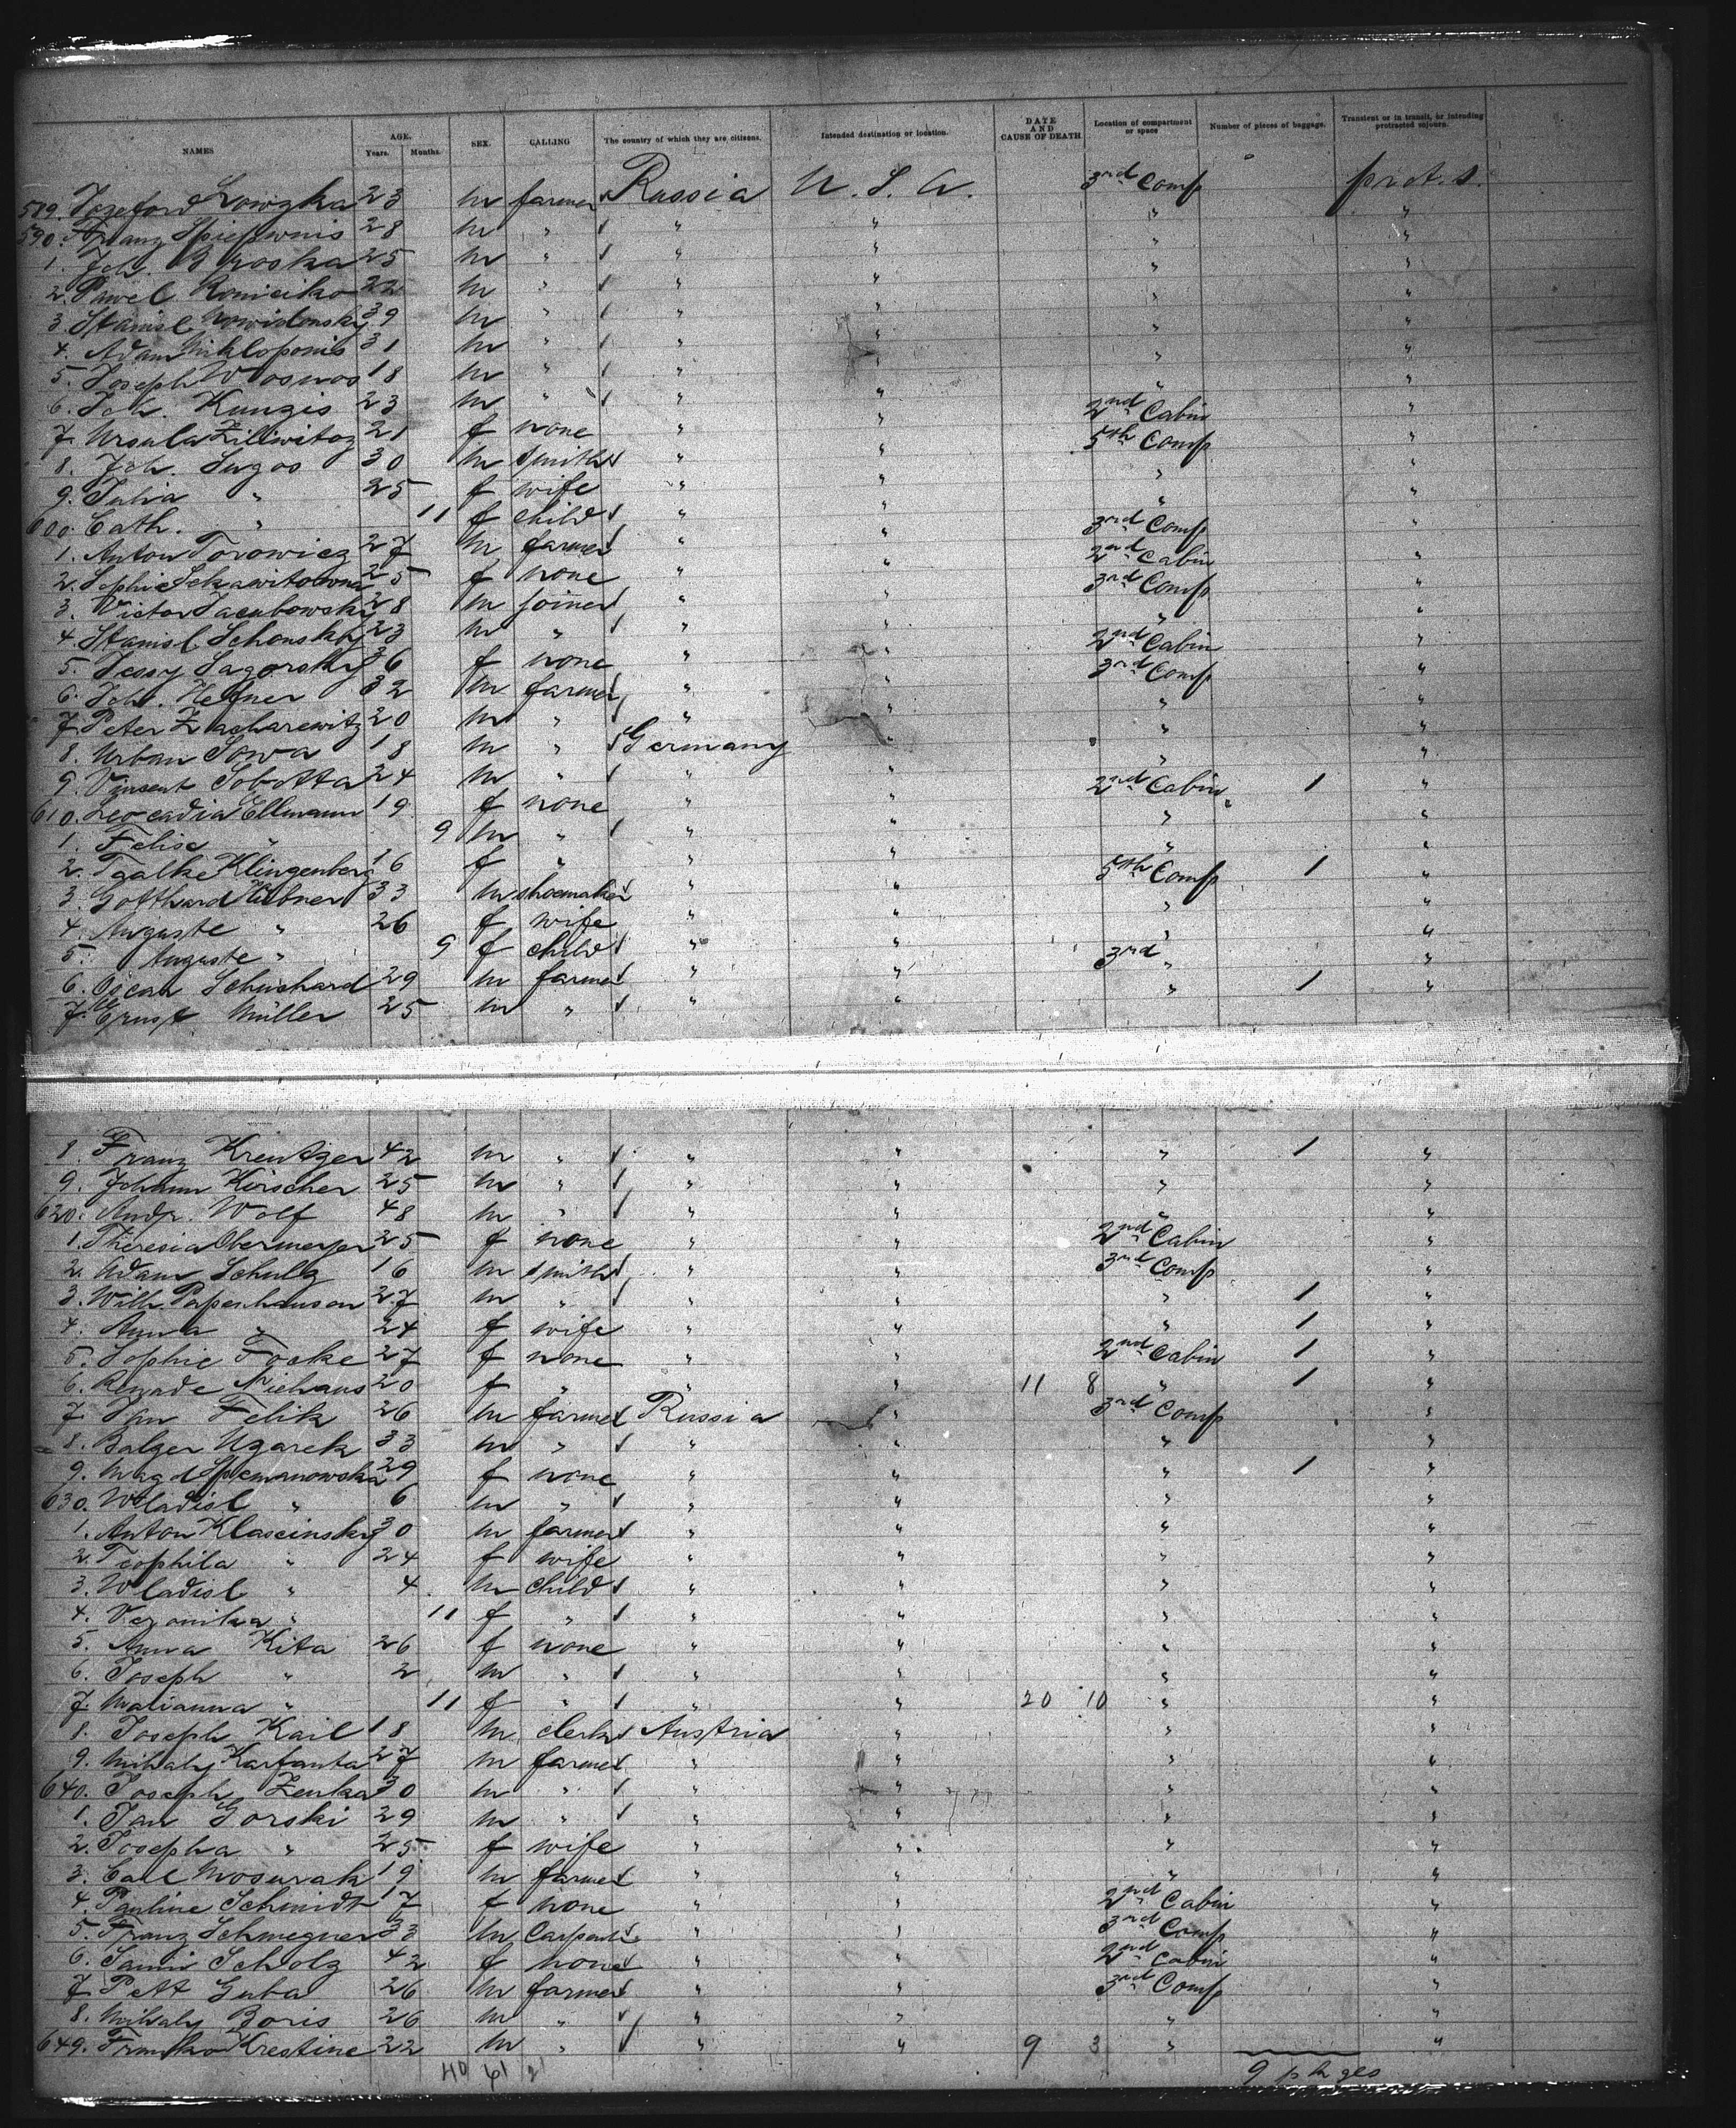 NAMES AGE. Years. Months. SEX. CALLING The country of which they are citizens. Intended destination or location. DATE AND CAUSE OF DEATH Location of compartment or space Number of pieces of baggage. Transient or in transit, or intending protracted sojourn.
589. 23 m farmer Russia U. S. A. 3rd Comp prot. s.
590. Franz 28 m " " " " "
1. Joh. Broska 25 m " " " " "
2. Pawel 22 m " " " " "
3. Stanisl. 39 m " " " " "
4. Adam 31 m " " " " "
5. Joseph 18 m " " " " "
6. Joh. Kunzis 23 m " " " " "
7. Ursula Zillwitoz 21 f none " " 2nd Cabin "
8. Joh. Sugos 30 m smith " " 5th Comp "
9. Julia " 25 f wife " " " "
600. Cath. " 11 f child " " " "
1. Anton Torowicz 27 m farmer " " 3rd Comp "
2. Sophie 25 f none " " 2nd Cabin "
3. Victor Jacubowsky 28 m joiner " " 3rd Comp "
4. Stanisl. Schonsky 23 m " " " " "
5. Jessy Sagorsky 36 f none " " 2nd Cabin "
6. Joh. Hefner 32 m farmer " " 3rd Comp "
7. Peter Zacharewitz 20 m " " " " "
8. Urban Sowa 18 m " Germany " " "
9. Vinsent Sobotta 24 m " " " " "
610. Leocadia Ellmann 19 f none " " 2nd Cabin 1 "
1. Felise " 9 m " " " " "
2. Klingenberg 16 f " " " " "
3. Gotthard Hübner 33 m shoemaker " " 5th Comp 1 "
4. Auguste " 26 f wife " " " "
5. Auguste " 9 f child " " " "
6. Oscar Schuchard 29 m farmer " " 3rd " "
7. Ernst Müller 25 m " " " " 1 "
8. Franz Kreutzer 42 m " " " " 1 "
9. Johann Kirscher 25 m " " " " "
620. Andr. Wolf 48 m " " " " "
1. Theresia Obermeyer 25 f none " " 2nd Cabin "
2. Adam Schulz 16 m smith " " 3rd Comp "
3. Wilh. Papeschausen 27 m " " " " 1 "
4. Anna " 24 f wife " " " 1 "
5. Sophie Focke 27 f none " " 2nd Cabin 1 "
6. Niehaus 20 f " " " 11 8 " 1 "
7. Jan Felik 26 m farmer Russia " 3rd Comp "
8. Balzer Uzarek 33 m " " " " "
9. Magd. 29 f none " " " 1 "
630. Wladisl. " 6 m " " " " "
1. Anton Klascinsky 30 m farmer " " " "
2. Teophila " 24 f wife " " " "
3. Wladisl. " 4 m child " " " "
4. Veronika " 11 f " " " " "
5. Anna Kita 26 f none " " " "
6. Joseph " 2 m " " " " "
7. Marianna " 11 f " " " 20 10 " "
8. Joseph Kail 18 m clerk Austria " " "
9. Mihaly Karfanta 27 m farmer " " " "
640. Joseph Zenka 30 m " " " " "
1. Jan Gorski 29 m " " " " "
2. Josepha " 25 f wife " " " "
3. Carl Mosurak 19 m farmer " " " "
4. Pauline Schmidt 17 f none " " 2nd Cabin "
5. Franz Schwegner 33 m Carpent. " " 3rd Comp "
6. Scholz 42 f none " " 2nd Cabin "
7. Guba 26 m farmer " " 3rd Comp "
8. Mihaly Boris 26 m " " " " "
649. Franko Krestine 22 m " " " 9 3 " "
40 61 21 9 pkges